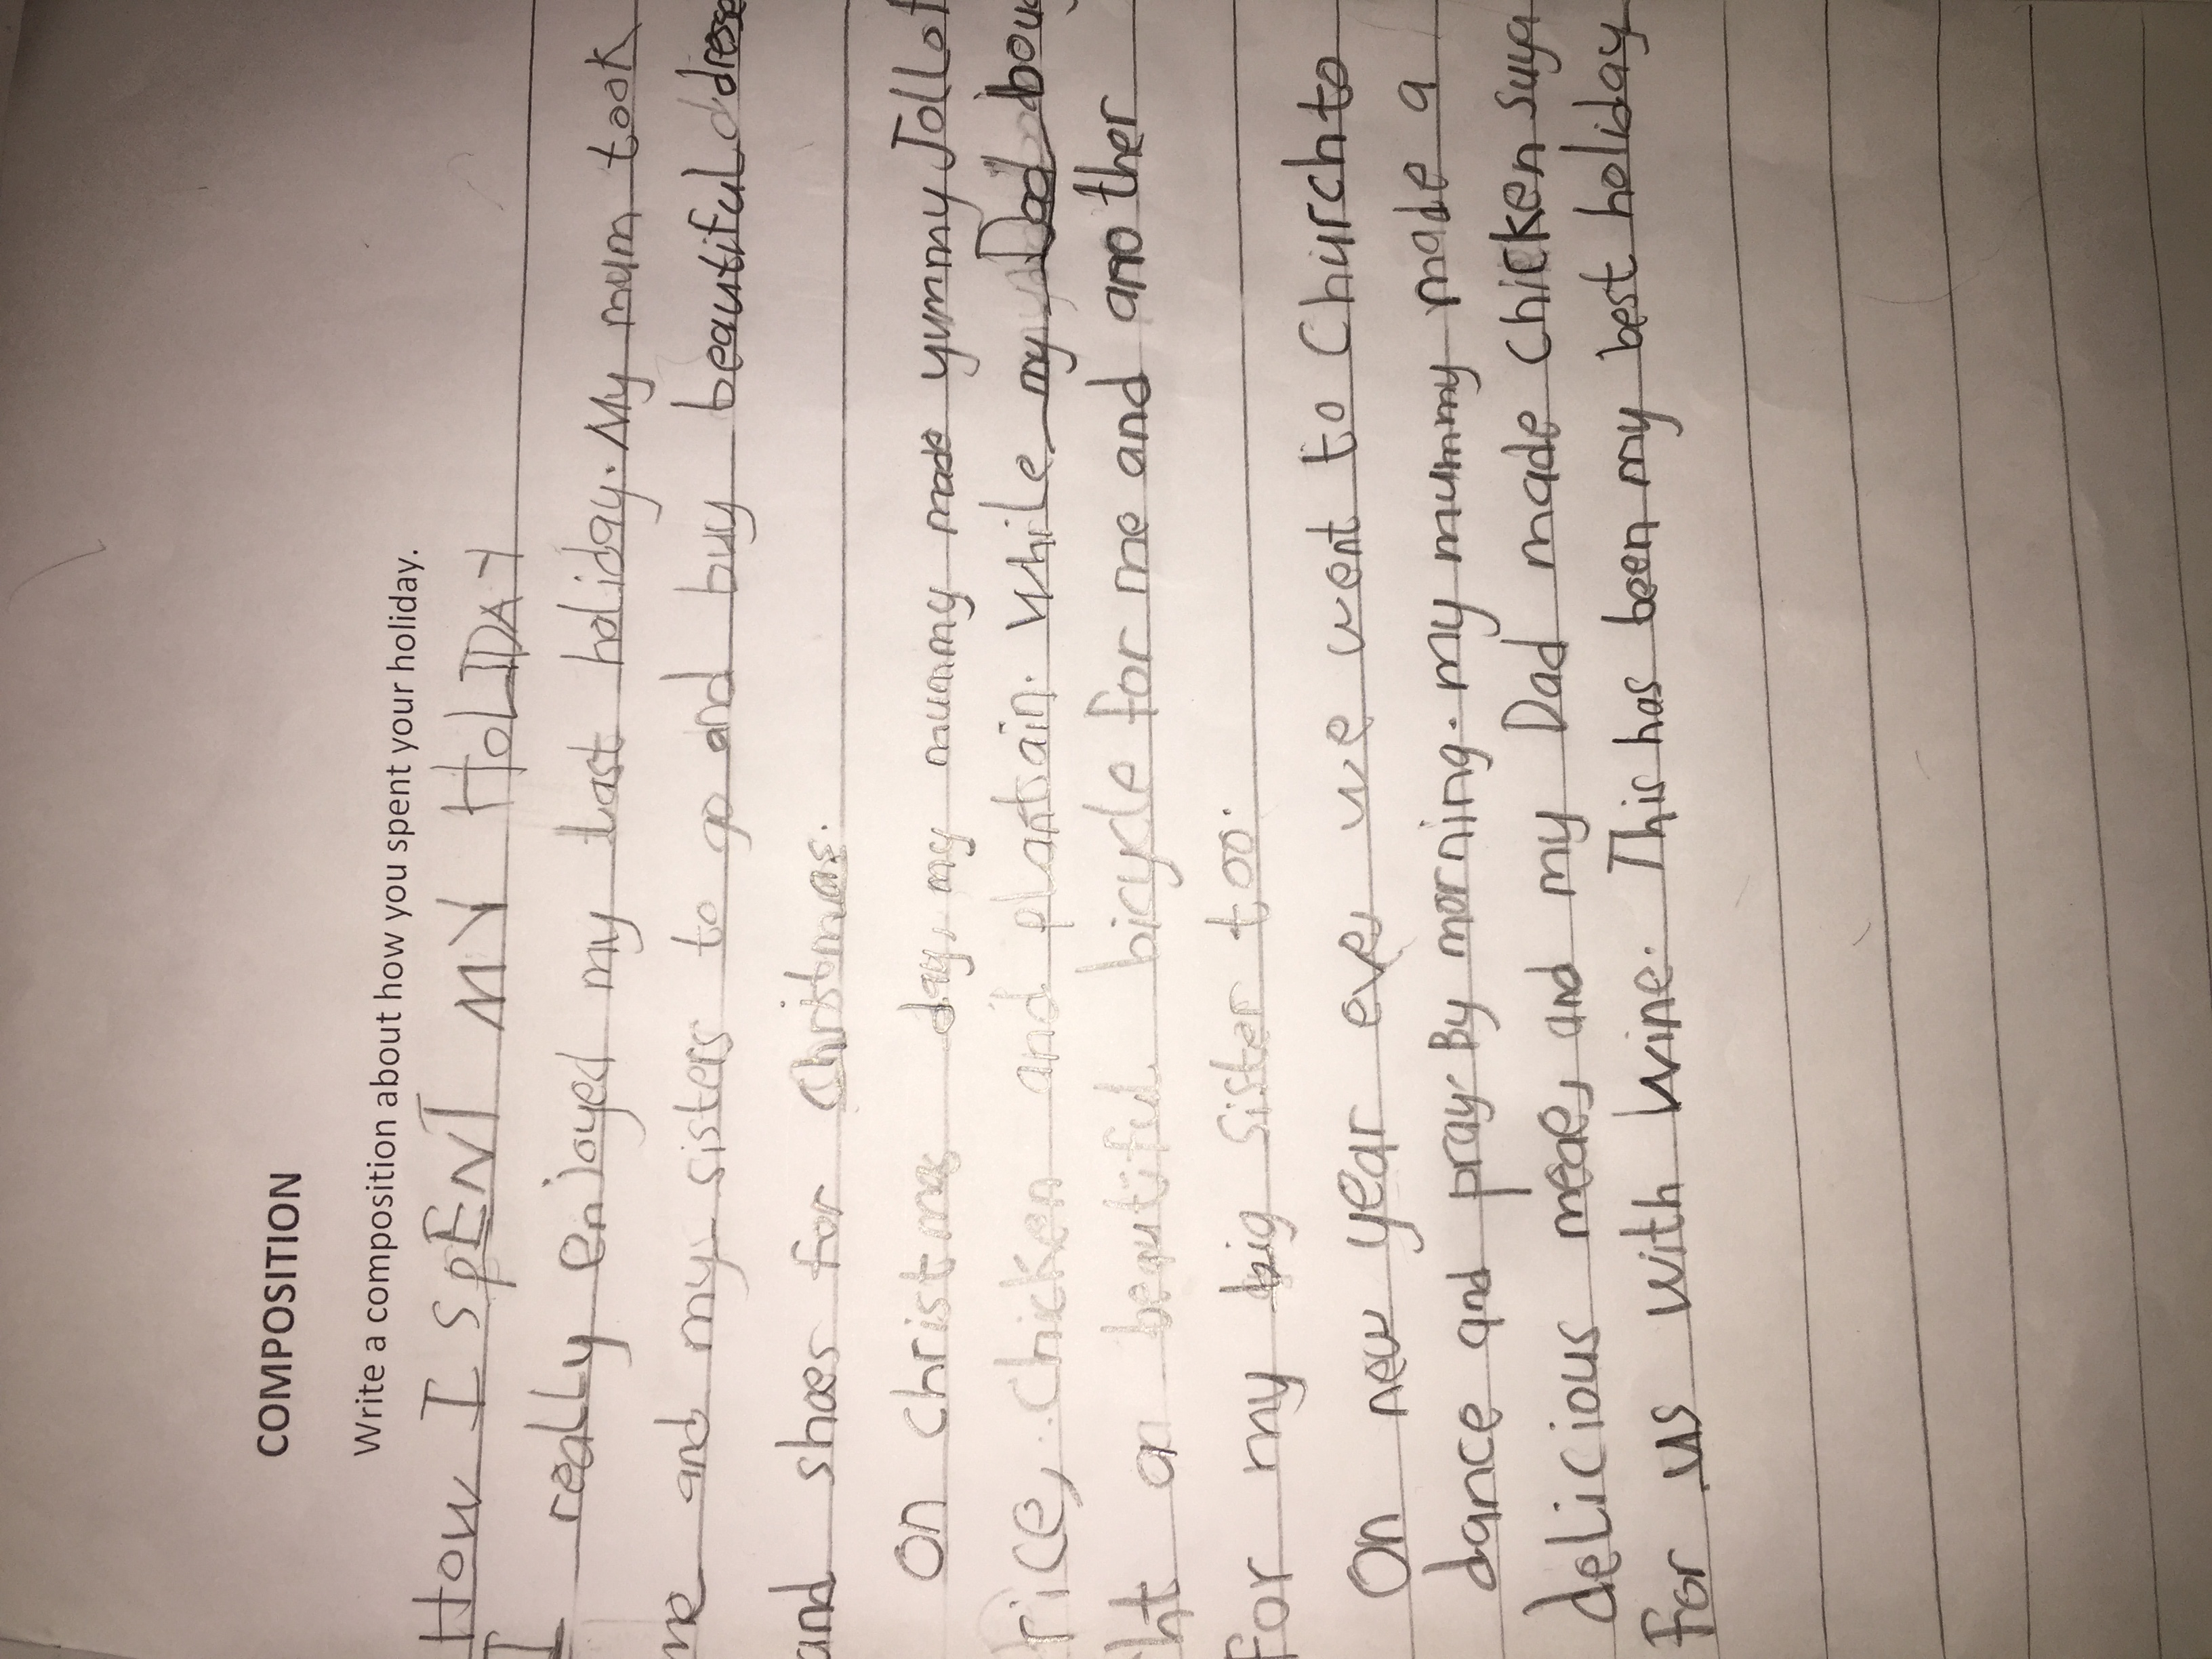 COMPOSITION
Write a composition about how you spent your holiday.
HOW I SpENT MY HoLIDAY
I really enjoyed my last holiday. My mum took
me and my sisters to go and buy beautiful dresse
and shoes for Christmas.
On christmas day, my mummy made yummy Jollof
rice, chicken and plantain. While my Dad boug
ht an beautiful bicycle for me and another
for my big sister too.
On new year eve, we went to Church to
dance and pray. By morning. my mummy made a
delicious meae, and my Dad made chicken suya
For us with wine. This has been my best holiday